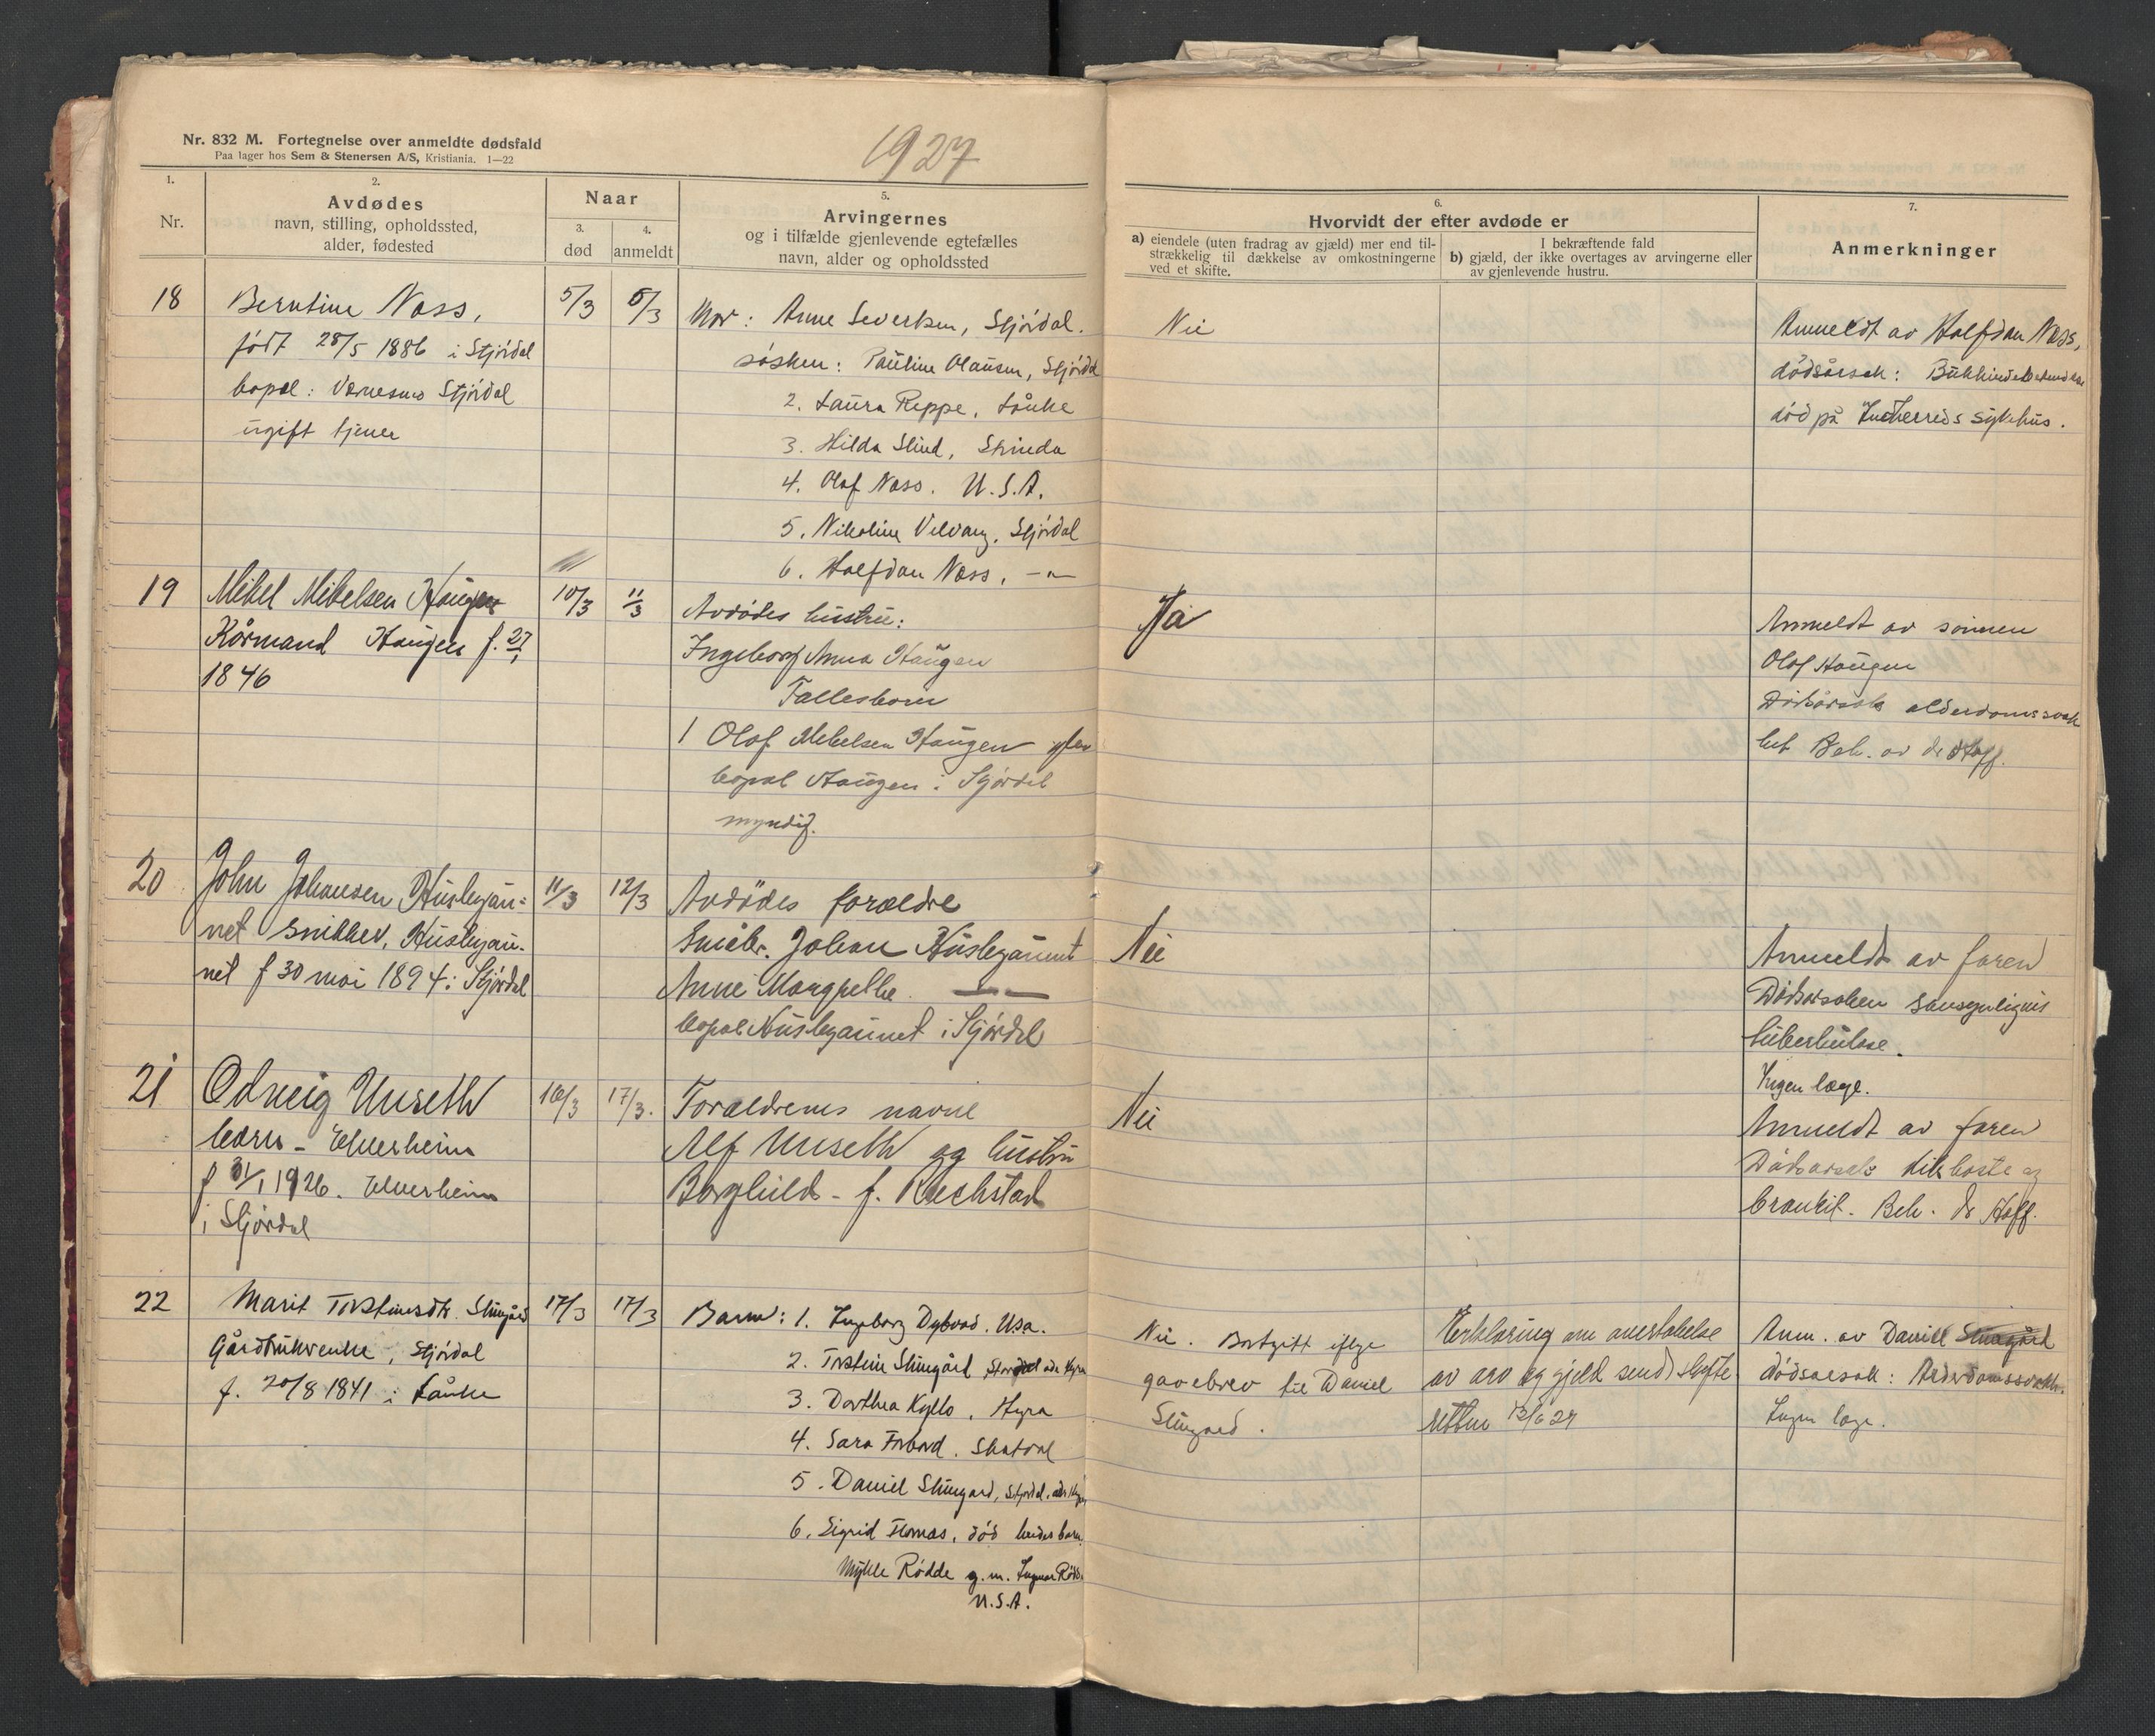 Nr. 832 M. Fortegnelse over anmeldte dødsfald
Paa lager hos Sem & Stenersen A/S, Kristiania. 1—22
1927
1.
Nr.
2.
Avdødes
navn, stilling, opholdssted,
alder, fødested
Naar
3.
død
4.
anmeldt
5.
Arvingernes
og i tilfælde gjenlevende egtefælles
navn, alder og opholdssted
6.
Hvorvidt der efter avdøde er
a) eiendele (uten fradrag av gjæld) mer end til-
strækkelig til dækkelse av omkostningerne
ved et skifte.
I bekræftende fald
b) gjæld, der ikke overtages av arvingerne eller
av gjenlevende hustru.
7.
Anmerkninger
18
Berntine Næss,
født 28/5 1886 i Stjørdal
bopæl: Værnesmo Stjørdal
ugift tjener
5/3
5/3
Mor: Anne Severtsen, Stjørdal.
søsken: Pauline Olausen, Stjørdal
2. Laura Reppe, Lånke
3. Hilda Slind, Strinda
4. Olaf Næss. U.S.A.
5. Nikoline Velvang, Stjørdal
6. Halfdan Næss, –"–
Nei
Anmeldt av Halfdan Næss,
dødsårsak:
død på Indherreds sykehus.
19
Mikel Mikelsen Haugen
Kårmand Haugen f. 27/1
1846
10/3
11/3
Avdødes hustru:
Ingeborg Anna Haugen
Fællesbarn
1 Olaf Mikelsen Haugen
bopæl Haugen i Stjørdal
myndig.
Ja
Anmeldt av sønnen
Olaf Haugen
Dødsårsak alderdomssvak
het Beh. av dr Hoff.
20
John Johansen Husbyaun=
net Snikker, Husbyau-
net f 30 mai 1894 i Stjørdal
11/3
12/3
Avdødes foreldre
Johan Husbyaunet
Anne Margrethe — —
bopæl Husbyaunet i Stjørdal
Nei
Anmeldt av faren
Dødsarsaken sansynligvis
tuberkulose.
Ingen læge.
21
Odveig Unseth
barn – Elverheim
f 31/1 1926. Elverheim
i Stjørdal
16/3
17/3.
Foreldrenes navne
Alf Unseth og hustru
Borghild – f. Reckstad
Nei
Anmeldt av faren
Dødsarsak kikhoste og
bronkit. Beh. dr Hoff.
22
Marit Torstensdtr. Stengård
Gårdbrukerenke, Stjørdal
f. 20/8 1841 i Lånke
17/3
17/3
Barn: 1. Ingeborg Dybvad. Usa.
2. Torstein Stengård, Stjørdal adr Hegra
3. Dorthea Kyllo, Hegra
4. Sara Forbord. Skatval
5. Daniel Stengard, Stjørdal. adr Hegra
6. Sigrid Flornes, død hendes barn.
Mykle Rødde g.m. Ingvar Rødde
U.S.A.
Nei. Bortgitt ifølge
gavebrev til Daniel
Stengard.
Erklæring om overtakelse
av arv og gjeld sendt skifte-
retten 13/6 27
Anm. av Daniel Stengård
dødsårsak: Alderdomssvakh.
Ingen læge.